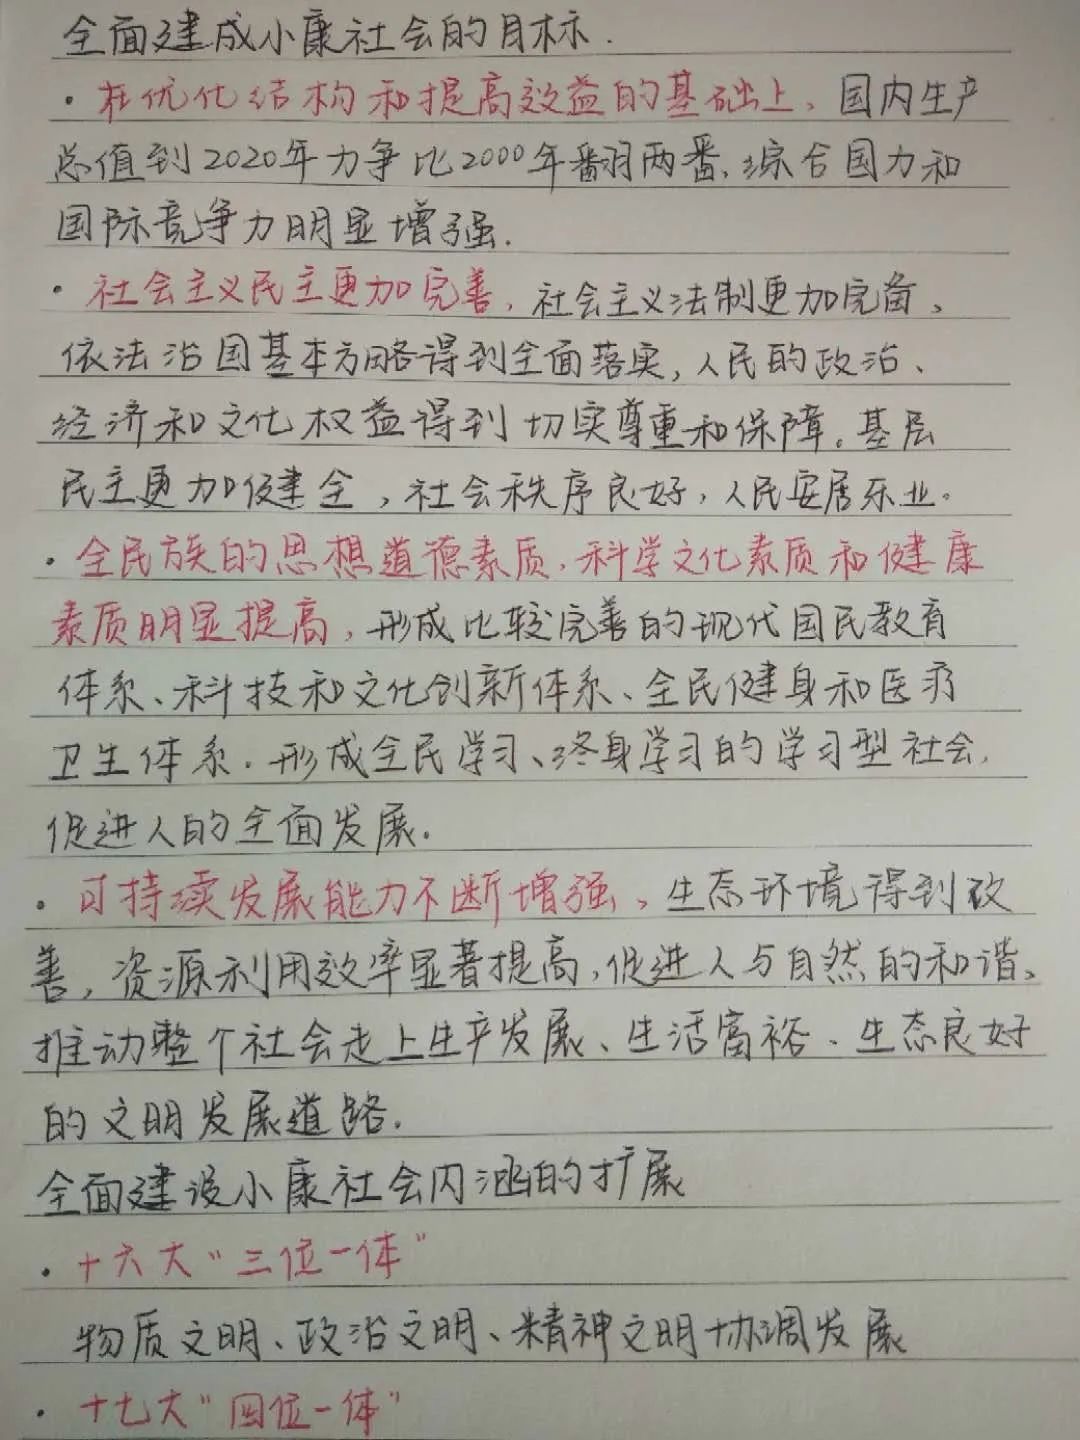 全面建成小康社会的目标.
·在优化结构和提高效益的基础上、国内生产
总值到2020年力争比2000年翻两番、综合国力和
国际竞争力明显增强.
·社会主义民主更加完善,社会主义法制更加完备、
依法治国基本方略得到全面落实,人民的政治、
经济和文化权益得到切实尊重和保障。基层
民主更加健全,社会秩序良好,人民安居乐业。
·全民族的思想道德素质、科学文化素质和健康
素质明显提高,形成比较完善的现代国民教育
体系、科技和文化创新体系、全民健身和医疗
卫生体系.形成全民学习、终身学习的学习型社会,
促进人的全面发展.
·可持续发展能力不断增强、生态环境得到改
善,资源利用效率显著提高,促进人与自然的和谐、
推动整个社会走上生产发展、生活富裕、生态良好
的文明发展道路.
全面建设小康社会内涵的扩展
·十六大“三位一体”
物质文明、政治文明、精神文明协调发展
·十七大“四位一体”